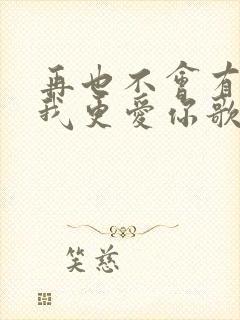 再也不會有
我更愛你歌
笑慈